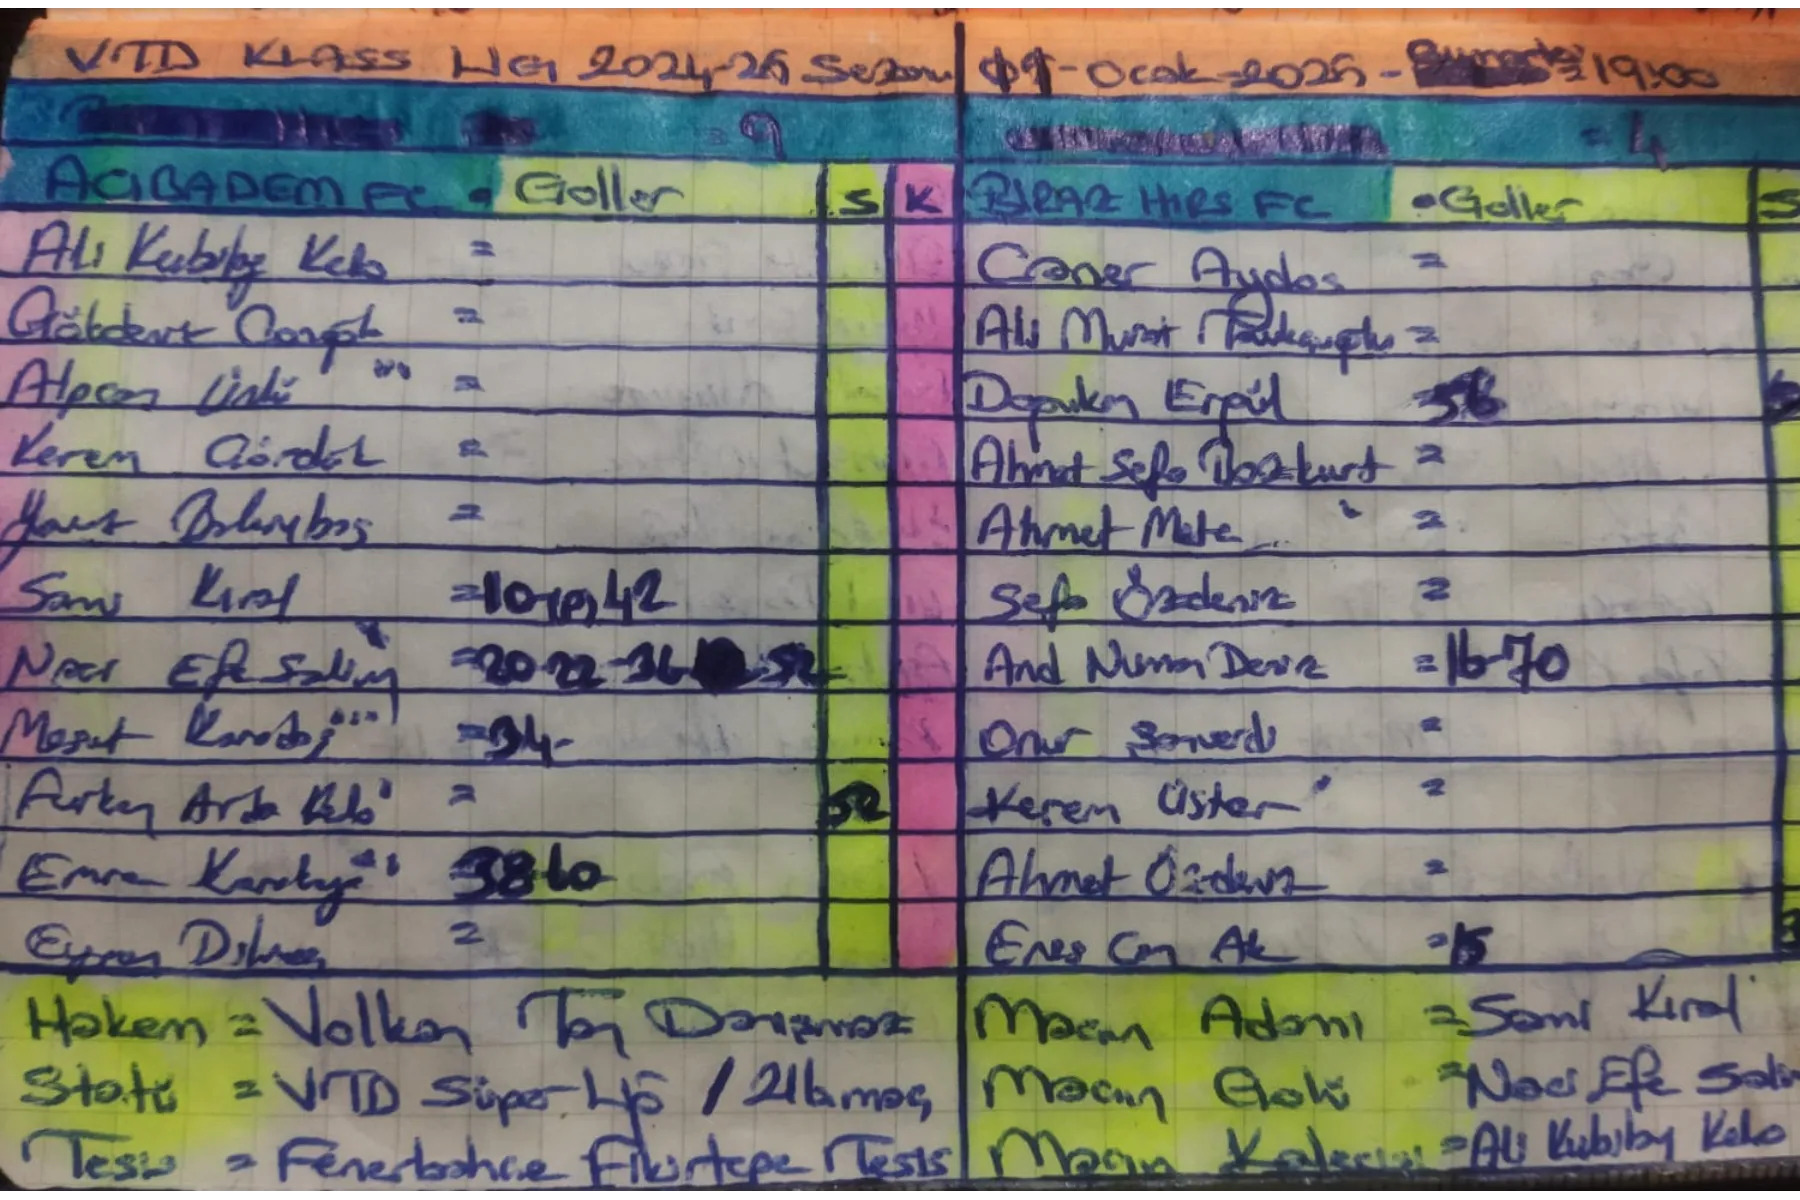 VTD KLASS LİG 2024-25 Sezonu
-Ocak-2025 - 19:00
= 9
= 4
ACIBADEM FC • Goller S K
BİRAZ HIRS FC • Goller S
Ali Kubilay Kelo =
Caner Aydos =
Gökdeniz =
Ali Murat =
Alpcan Ünlü =
Ergül 56
Kerem =
Ahmet Sefa Bozkurt =
Yavuz =
Ahmet Mete =
Sami Kıral =10(P),42
Sefa Özdeniz =
Naci Efe Salim =20-22-36 -52
And Numan Deniz =16-70
Mesut Karadağ =34-
Onur =
Furkan Arda Kelo = 52
Kerem Üster =
Emre Karakaya 38-60
Ahmet Özdeniz =
=
Enes Can Ak =15
Hakem = Volkan Tan
Statü = VTD Süper Lig / 216.maç
Tesis = Fenerbahçe Fikirtepe Tesis
Maçın Adamı =Sami Kıral
Maçın Golü =Naci Efe Salim
Maçın Kalecisi =Ali Kubilay Kelo